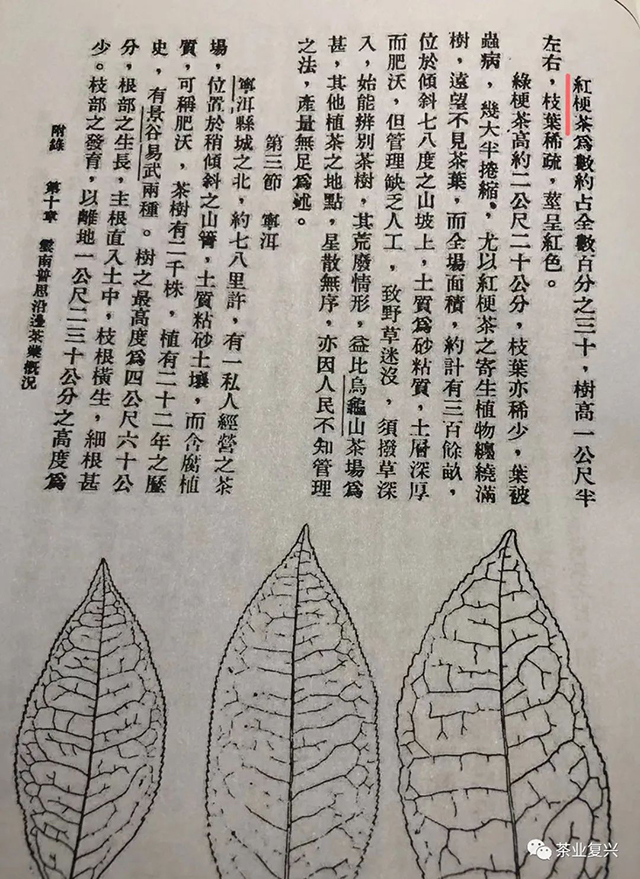 紅梗茶爲數約占全數百分之三十，樹高一公尺半
左右，枝葉稀疏，莖呈紅色。
綠梗茶高約二公尺二十公分，枝葉亦稀少，葉被
蟲病，幾大半捲縮，尤以紅梗茶之寄生植物纏繞滿
樹，遠望不見茶葉，而全場面積，約計有三百餘畝，
位於傾斜七八度之山坡上，土質爲砂粘質，土層深厚
而肥沃，但管理缺乏人工，致野草迷沒，須撥草深
入，始能辨別茶樹，其荒廢情形，益比烏龜山茶場爲
甚，其他植茶之地點，星散無序，亦因人民不知管理
之法，產量無足爲述。
第三節　寧洱
寧洱縣城之北，約七八里許，有一私人經營之茶
場，位置於稍傾斜之山箐，土質粘砂土壤，而含腐植
質，可稱肥沃，茶樹有二千株，植有二十二年之歷
史，有景谷易武兩種。樹之最高度爲四公尺六十公
分，根部之生長，主根直入土中，枝根橫生，細根甚
少。枝部之發育，以離地一公尺二三十公分之高度爲
附錄　第十章　雲南普思沿邊茶業概況
茶业复兴